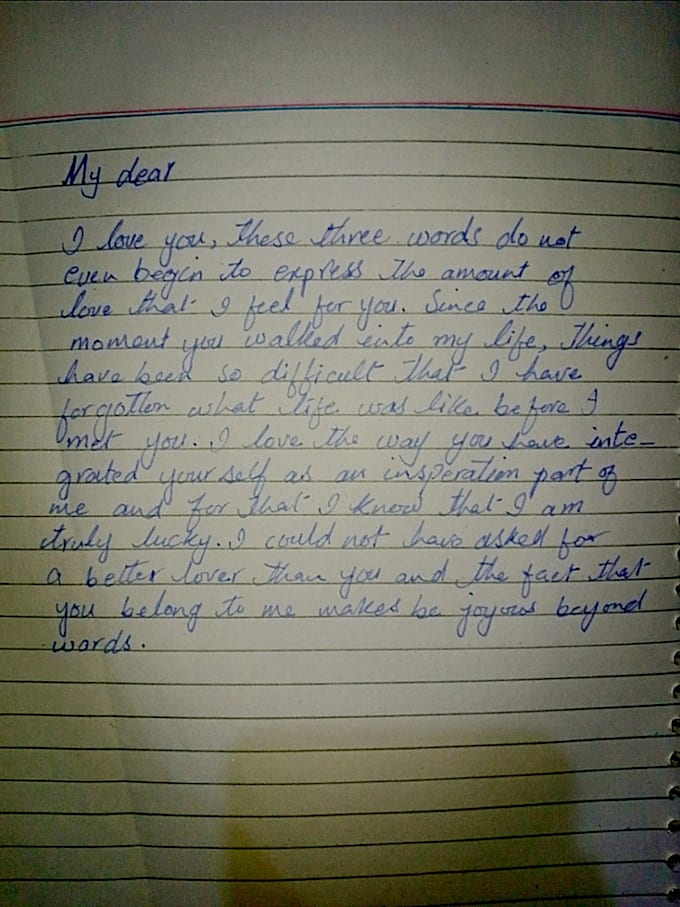 My dear
I love you, these three words do not
even begin to express the amount of
love that I feel for you. Since the
moment you walked into my life, Things
have been so difficult that I have
forgotten what life was like before I
met you. I love the way you have inte-
grated yourself as an insperation part of
me and for that I know that I am
truly lucky. I could not have asked for
a better lover than you and the fact that
you belong to me makes be joyous beyond
words.